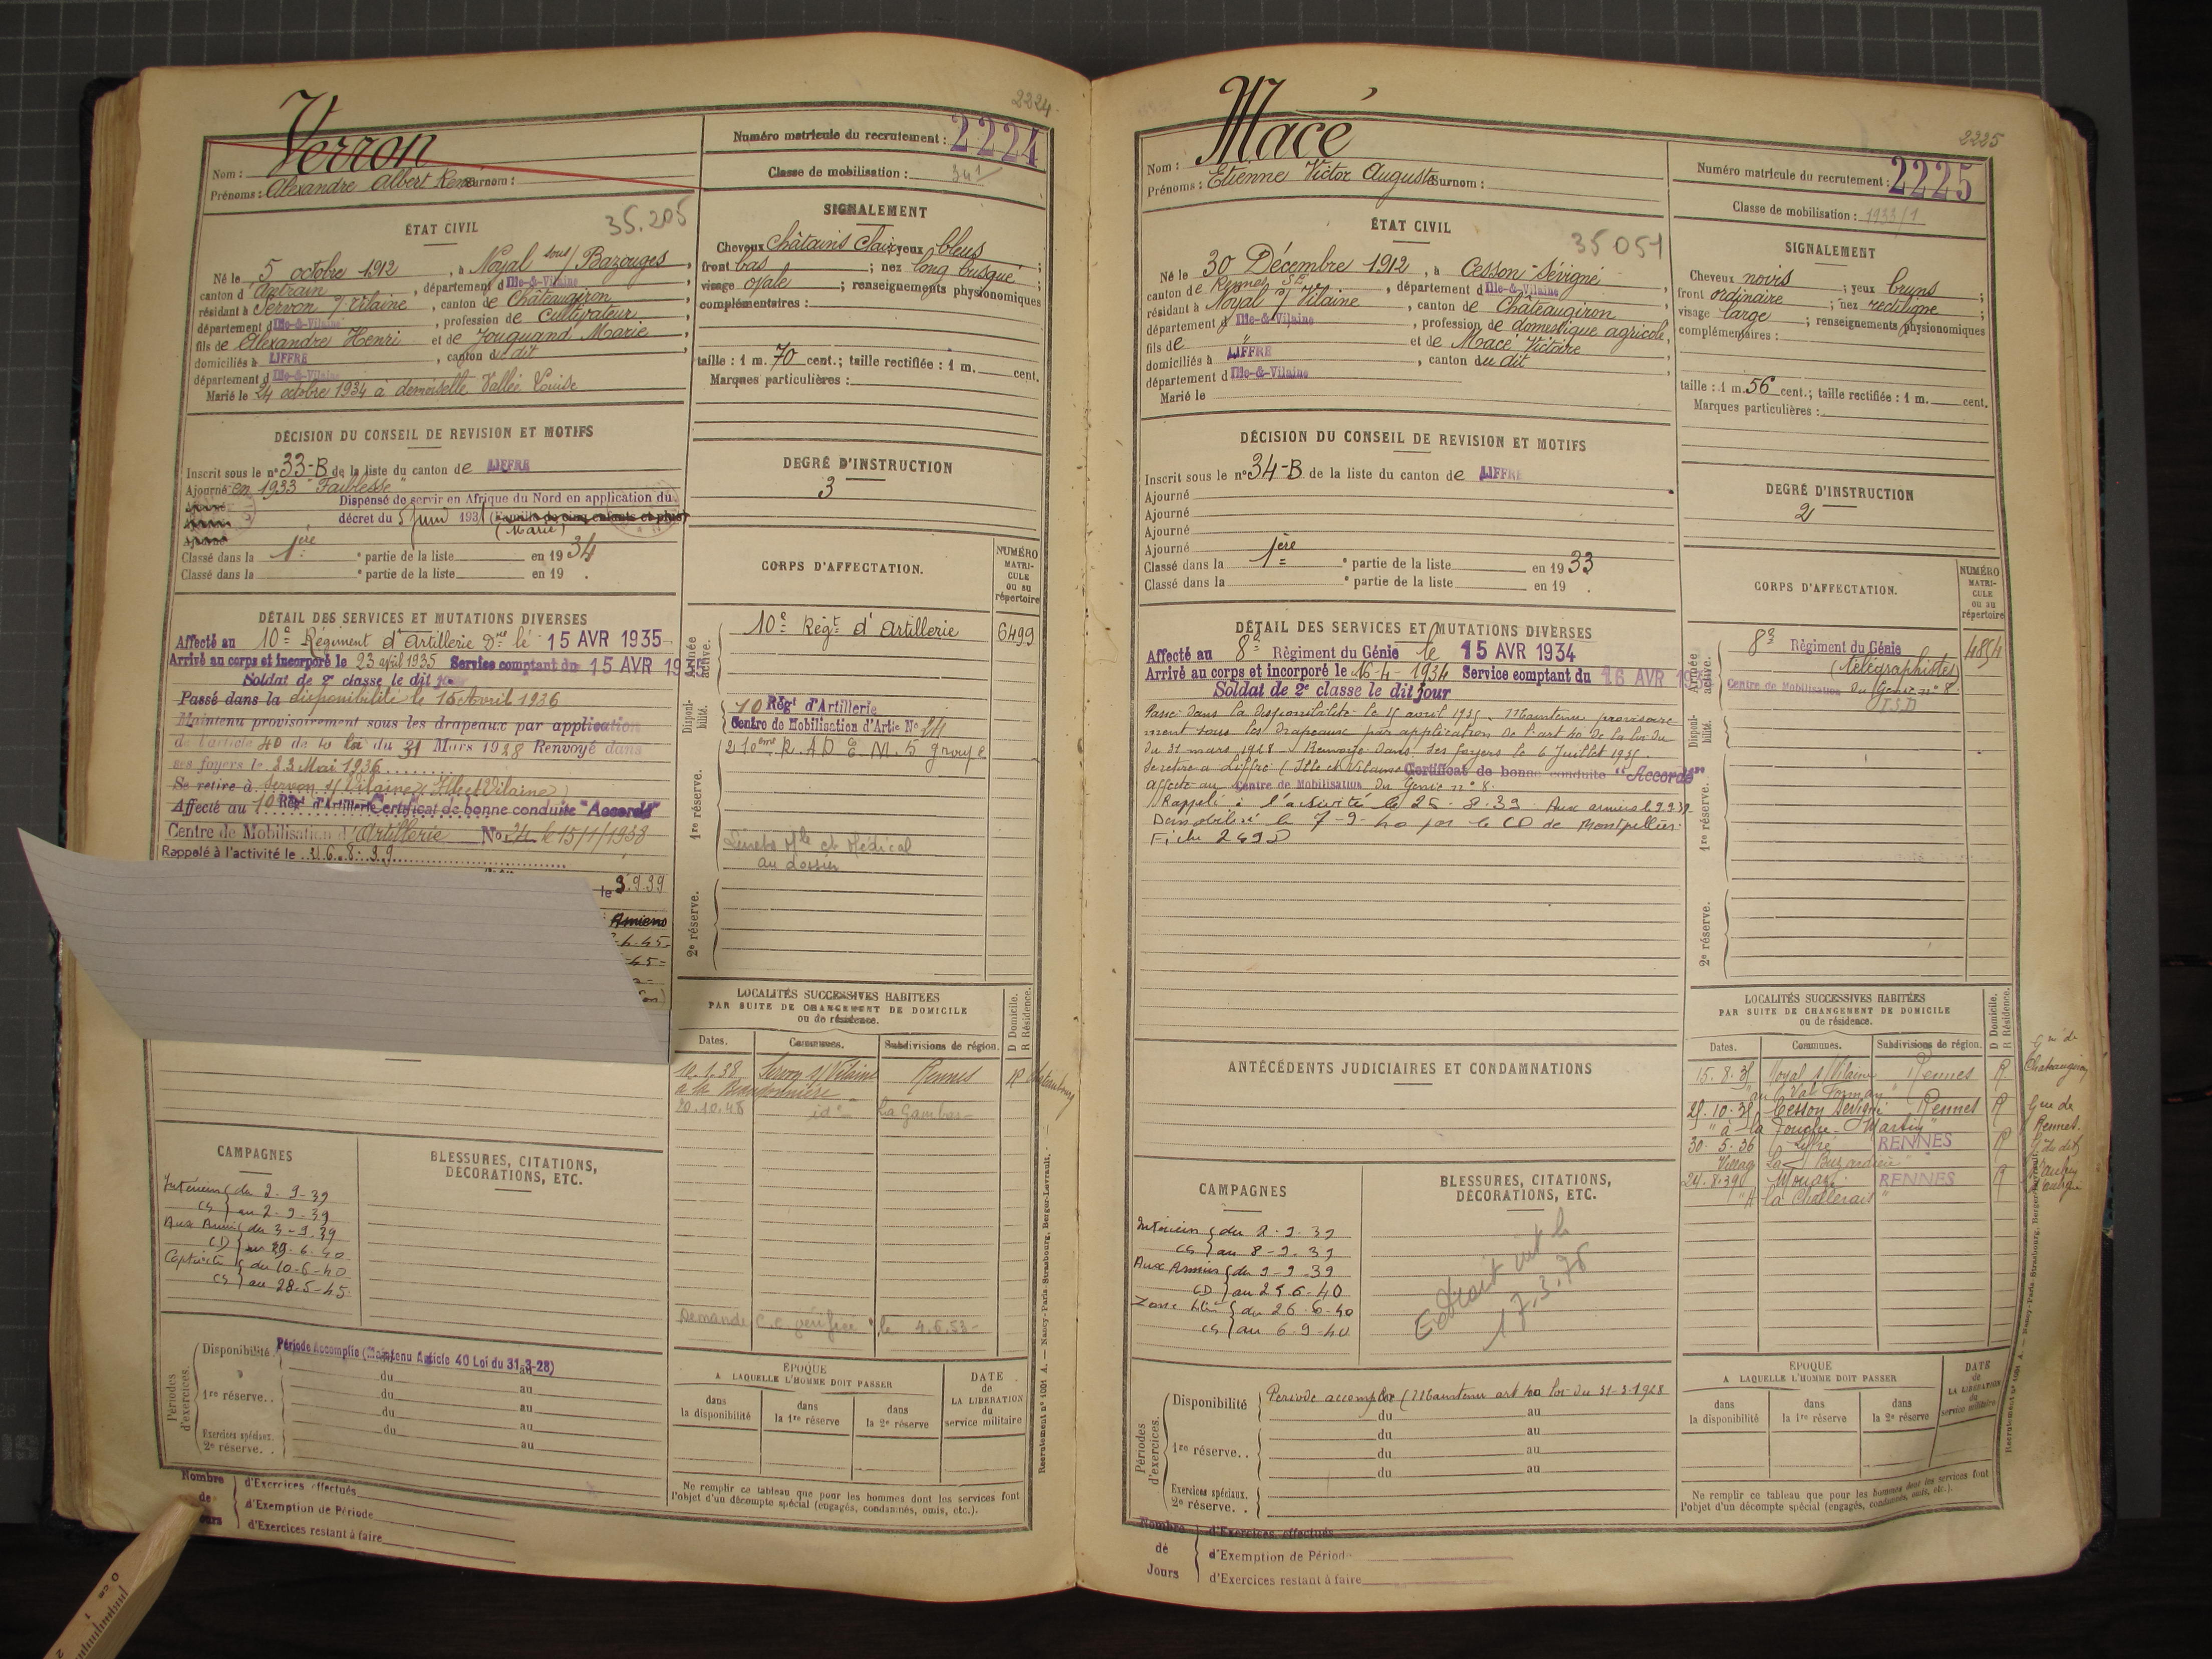 2224
Verron
Nom :
Prénoms : Alexandre Albert René Surnom :
Numéro matricule du recrutement : 2224
Classe de mobilisation :
ÉTAT CIVIL
35.205
Né le 5 octobre 1912, à Noyal sous/ Bazouges,
canton d'Antrain, département d Ille-&-Vilaine,
résidant à Servon s/ Vilaine, canton de Châteaugiron,
département d Ille-&-Vilaine, profession de cultivateur,
fils de Alexandre Henri et de Jouquand Marie,
domiciliés à LIFFRÉ, canton du dit,
département d Ille-&-Vilaine
Marié le 24 octobre 1934 à demoiselle Vallée Louise
SIGNALEMENT
Cheveux Châtains Clair yeux bleus ;
front bas ; nez long busqué ;
visage ovale ; renseignements physionomiques
complémentaires :
taille : 1 m. 70 cent.; taille rectifiée : 1 m. cent.
Marques particulières :
DÉCISION DU CONSEIL DE REVISION ET MOTIFS
Inscrit sous le n° 33-B de la liste du canton de LIFFRÉ
Ajourné en 1933 "Faiblesse"
Dispensé de servir en Afrique du Nord en application du
décret du 5 Juin 1931 (Famille de cinq enfants et plus)
(Marié)
Ajourné
Classé dans la 1ère partie de la liste en 1934
Classé dans la e partie de la liste en 19 .
DEGRÉ D'INSTRUCTION
3
CORPS D'AFFECTATION.
NUMÉRO MATRICULE ou au répertoire
DÉTAIL DES SERVICES ET MUTATIONS DIVERSES
Affecté au 10e Régiment d'Artillerie Dre le 15 AVR 1935
Arrivé au corps et incorporé le 23 avril 1935 Service comptant du 15 AVR 19
Soldat de 2e classe le dit jour
Passé dans la disponibilité le 16 Avril 1936
Maintenu provisoirement sous les drapeaux par application
de l'article 40 de la loi du 31 Mars 1928 Renvoyé dans
ses foyers le 23 Mai 1936
Se retire à Servon s/ Vilaine (Ille et Vilaine)
Affecté au 10 Régt d'Artillerie Certificat de bonne conduite "Accordé"
Centre de Mobilisation d'Artillerie No 24 le 15/1/1938
Rappelé à l'activité le 26.8.39
le 3.9.39
Amiens
Année active.
10e Régt d'Artillerie 6499
Disponibilité.
10 Régt d'Artillerie
Centre de Mobilisation d'Artie No 24
210ème R.A.D. E.M. 5 groupe
1re réserve.
Livrets Mle et Médical
au dossier
2e réserve.
LOCALITÉS SUCCESSIVES HABITÉES
PAR SUITE DE CHANGEMENT DE DOMICILE
ou de résidence.
D Domicile. R Résidence.
Dates. Communes. Subdivisions de région.
Servon s/ Vilaine Rennes R
20.10.48 id° La Gambas
Demande C.C. vérifiée le 4.6.53
CAMPAGNES
Intérieur { du 2-9-39
CS } au 2-9-39
Aux Armées { du 3-9-39
CD } au 09-6-40
Captivité { du 10-6-40
CS } au 28-5-45
BLESSURES, CITATIONS,
DÉCORATIONS, ETC.
Périodes d'exercices.
Disponibilité Période Accomplie (Maintenu Article 40 Loi du 31-3-28)
du au
1re réserve.. du au
du au
Exercices spéciaux. 2e réserve. . du au
ÉPOQUE
A LAQUELLE L'HOMME DOIT PASSER
dans la disponibilité
dans la 1re réserve
dans la 2e réserve
DATE de LA LIBÉRATION du service militaire
Ne remplir ce tableau que pour les hommes dont les services font
l'objet d'un décompte spécial (engagés, condamnés, omis, etc.).
Nombre de Jours
d'Exercices effectués
d'Exemption de Période
d'Exercices restant à faire
Recrutement n° 1001 A. — Nancy-Paris-Strasbourg, Berger-Levrault.
2225
Macé
Nom :
Prénoms : Etienne Victor Auguste Surnom :
Numéro matricule du recrutement : 2225
Classe de mobilisation : 1933/1
ÉTAT CIVIL
35051
Né le 30 Décembre 1912, à Cesson-Sévigné
canton de Rennes SE, département d Ille-&-Vilaine
résidant à Noyal s/ Vilaine, canton de Châteaugiron
département d Ille-&-Vilaine, profession de domestique agricole,
fils de " et de Macé Victoire
domiciliés à LIFFRÉ, canton du dit,
département d Ille-&-Vilaine
Marié le
SIGNALEMENT
Cheveux noirs ; yeux bruns ;
front ordinaire ; nez rectiligne ;
visage large ; renseignements physionomiques
complémentaires :
taille : 1 m. 56 cent.; taille rectifiée : 1 m. cent.
Marques particulières :
DÉCISION DU CONSEIL DE REVISION ET MOTIFS
Inscrit sous le n° 34-B de la liste du canton de LIFFRÉ
Ajourné
Ajourné
Ajourné
Ajourné
Classé dans la 1ère partie de la liste en 1933
Classé dans la e partie de la liste en 19 .
DEGRÉ D'INSTRUCTION
2
CORPS D'AFFECTATION.
NUMÉRO MATRICULE ou au répertoire
DÉTAIL DES SERVICES ET MUTATIONS DIVERSES
Affecté au 8e Régiment du Génie le 15 AVR 1934
Arrivé au corps et incorporé le 16-4-1934 Service comptant du 16 AVR 19
Soldat de 2e classe le dit jour
Passé dans la disponibilité le 15 avril 1935. Maintenu provisoire
ment sous les drapeaux par application de l'art 40 de la loi du
du 31 mars 1928 Renvoyé dans ses foyers le 6 Juillet 1935.
Se retire à Liffré (Ille et Vilaine) Certificat de bonne conduite "Accordé"
Affecté au Centre de Mobilisation du Génie n° 8.
Rappelé à l'activité le 25.8.39 Aux armées le 9.9.39.
Démobilisé le 7-9-40 par le CD de Montpellier.
Fiche 2492
Année active.
8e Régiment du Génie
(télégraphistes)
Centre de Mobilisation du Génie n° 8
Disponibilité.
1re réserve.
2e réserve.
ANTÉCÉDENTS JUDICIAIRES ET CONDAMNATIONS
LOCALITÉS SUCCESSIVES HABITÉES
PAR SUITE DE CHANGEMENT DE DOMICILE
ou de résidence.
D Domicile. R Résidence.
Dates. Communes. Subdivisions de région.
15.8.35 Noyal s/ Vilaine Rennes R. Châteaugiron
25.10.35 Cesson Sévigné Rennes R Gne de Rennes.
"à la Touche Martin"
30.5.36 Liffré RENNES R
Village La
24.8.39 Mouazé RENNES R
CAMPAGNES
Intérieur { du 2-9-39
CS } au 8-9-39
Aux Armées { du 9-9-39
CD } au 25-6-40
Zone libre { du 26-6-40
CS } au 6-9-40
BLESSURES, CITATIONS,
DÉCORATIONS, ETC.
Extrait
17.3.78
Périodes d'exercices.
Disponibilité Période accomplie (Maintenu art 40 loi du 31-3-1928
du au
1re réserve.. du au
du au
du au
Exercices spéciaux. 2e réserve. .
ÉPOQUE
A LAQUELLE L'HOMME DOIT PASSER
dans la disponibilité
dans la 1re réserve
dans la 2e réserve
DATE de LA LIBÉRATION du service militaire
Ne remplir ce tableau que pour les hommes dont les services font
l'objet d'un décompte spécial (engagés, condamnés, omis, etc.).
Nombre de Jours
d'Exercices effectués
d'Exemption de Période
d'Exercices restant à faire
Recrutement n° 1001 A. — Nancy-Paris-Strasbourg, Berger-Levrault.